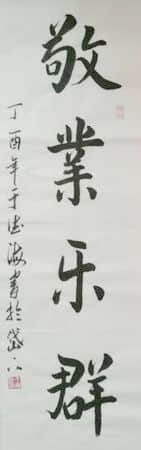 敬業乐群
丁酉年于德海書於岱下